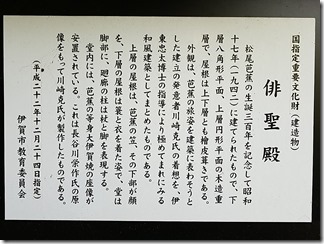 国指定重要文化財(建造物)
俳聖殿
松尾芭蕉の生誕三百年を記念して昭和
十七年(一九四二)に建てられたもので、下
層が八角形平面、上層円形平面の木造重
層で、屋根は上下層とも檜皮葺きである。
外観は、芭蕉の旅姿を建築に表わそうと
した建立の発意者川崎克氏の着想を、伊
東忠太博士の指導により極めてまれにみる
和風建築としてまとめたものである。
上層の屋根は、芭蕉の笠、その下部が顔
を、下層の屋根は蓑と衣を着た姿で、堂は
脚部に、廻廊の柱は杖と脚を表現する。
堂内には、芭蕉の等身大伊賀焼の座像が
安置されている。これは長谷川栄作氏の原
像をもって川崎克氏が製作したものである。
(平成二十二年十二月二十四日指定)
伊賀市教育委員会